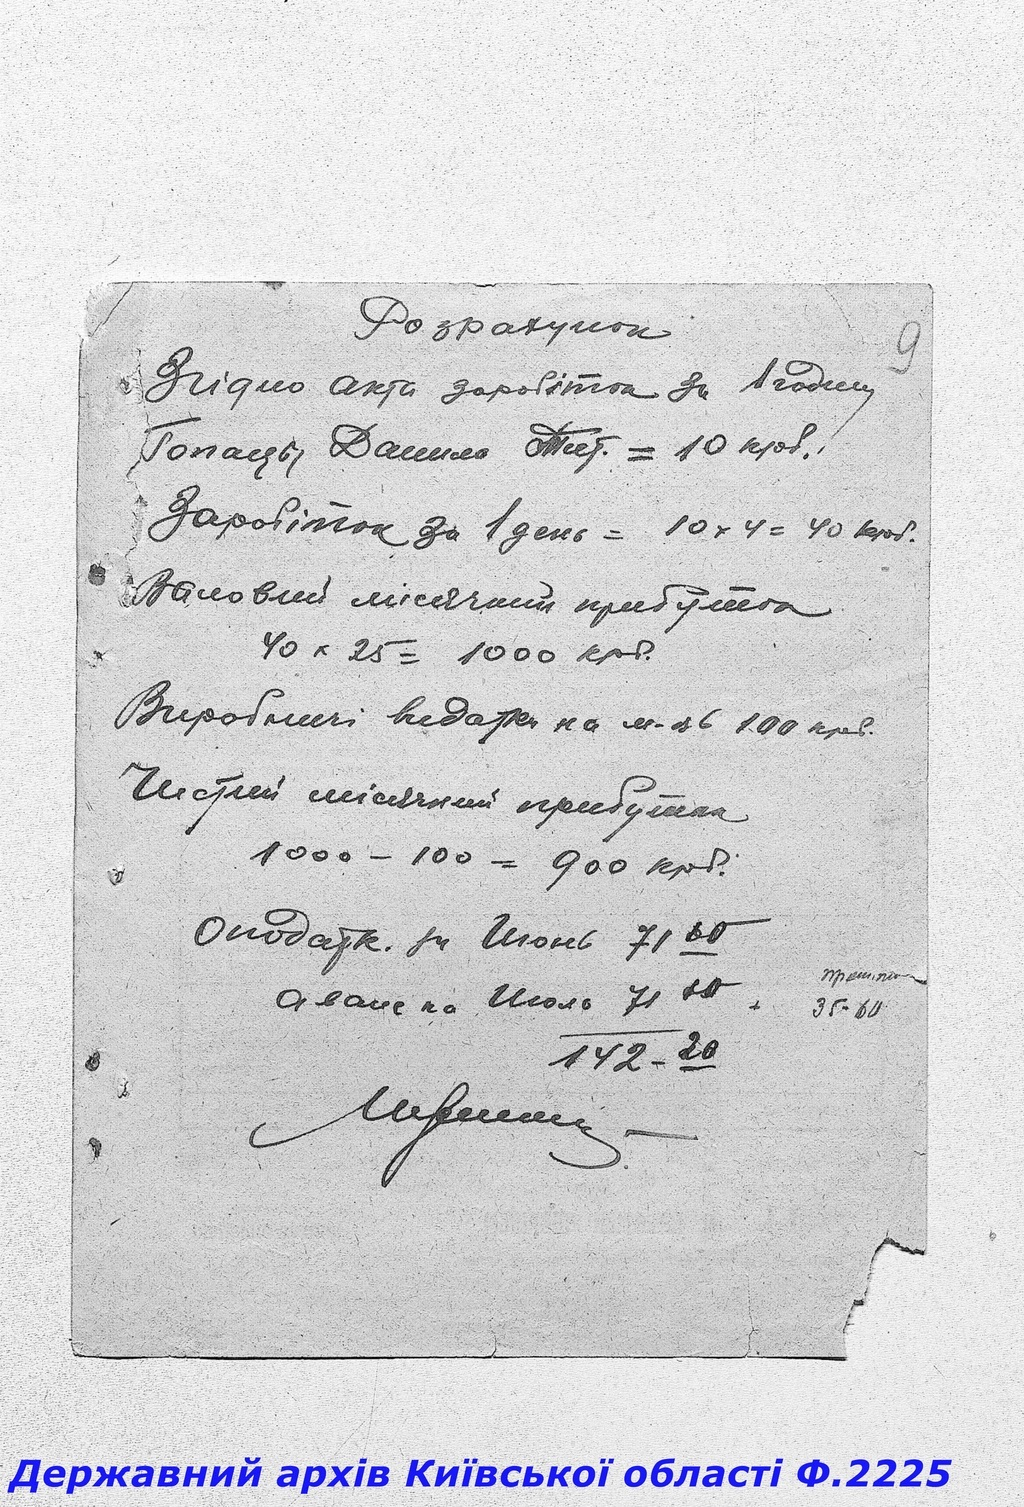 9
Розрахунок
Згідно акта заробіток за 1 годину
Данило Тит. = 10 крб.
Заробіток за 1 день = 10 х 4 = 40 крб.
Валовий місячний прибуток
40 х 25 = 1000 крб.
Виробничі видатки на м-ць 100 крб.
Чистий місячний прибуток
1000 – 100 = 900 крб.
Оподатк. за Июнь 71
аванс на Июль 71
35-60
142-20
Державний архів Київської області Ф.2225